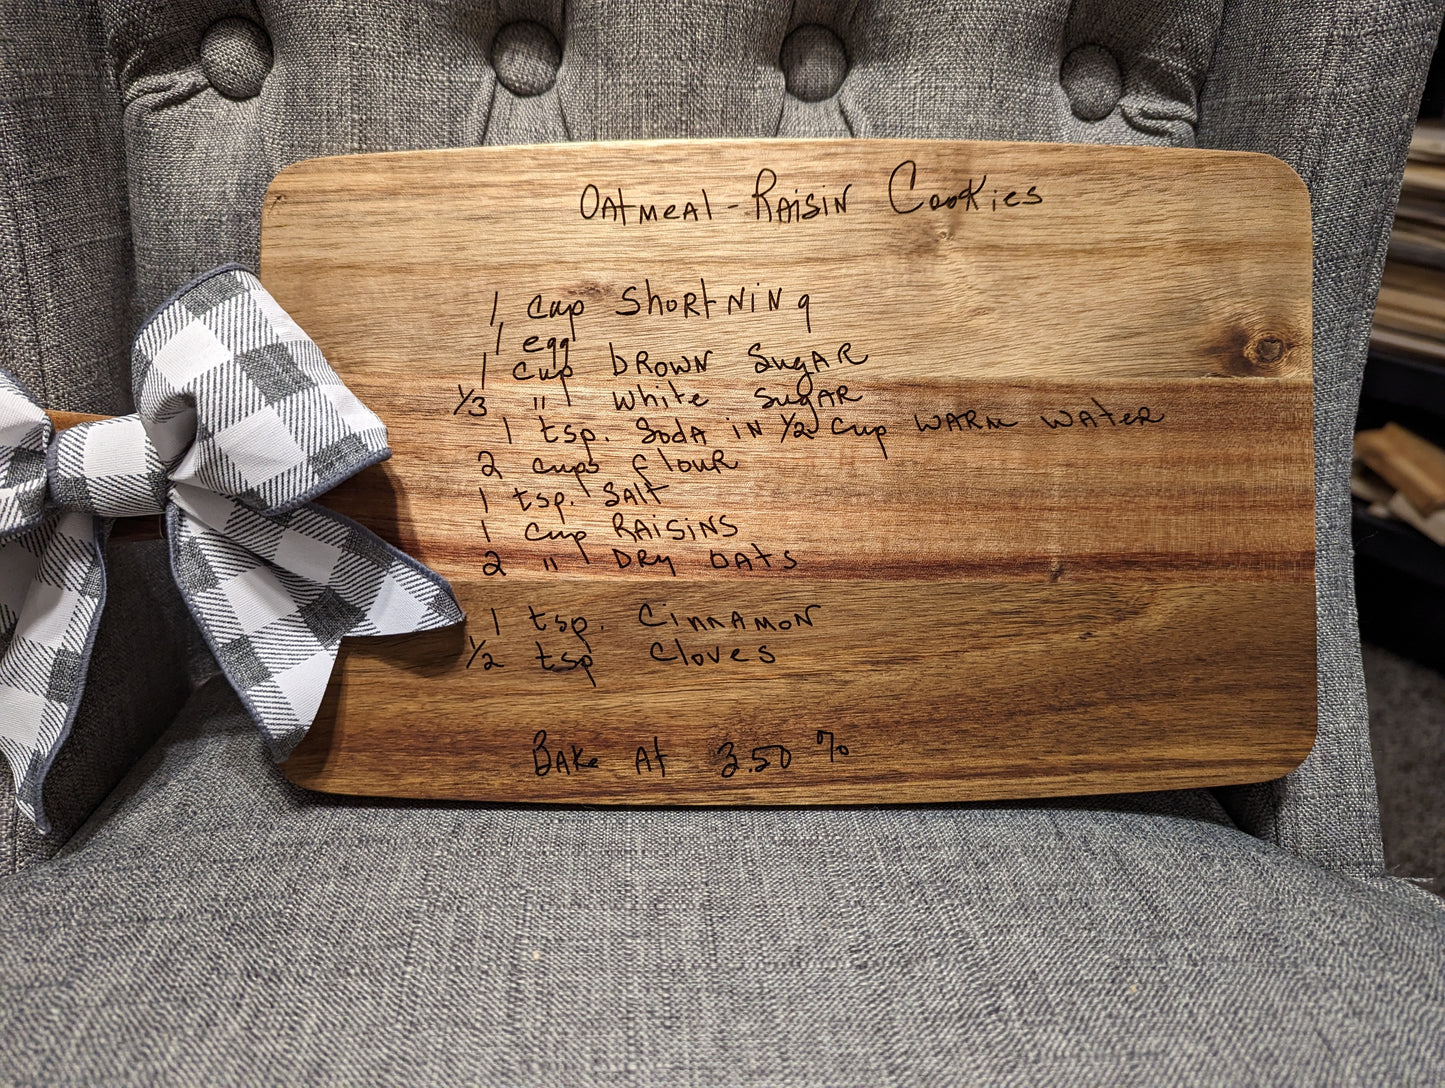 Oatmeal-Raisin Cookies
1 cup Shortning
1 egg
1 cup brown Sugar
1/3 " white Sugar
1 tsp. Soda in 1/2 cup warm water
2 cups flour
1 tsp. Salt
1 cup Raisins
2 " Dry Oats
1 tsp. Cinnamon
1/2 tsp Cloves
Bake At 3.50 %